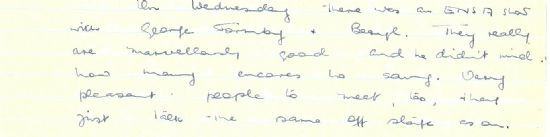 On Wednesday there was an ENSA show
with George Formby + Beryl. They really
are marvellously good and he didn't mind
how many encores he sang. Very
pleasant people to meet, too, they
just talk the same off stage as on.